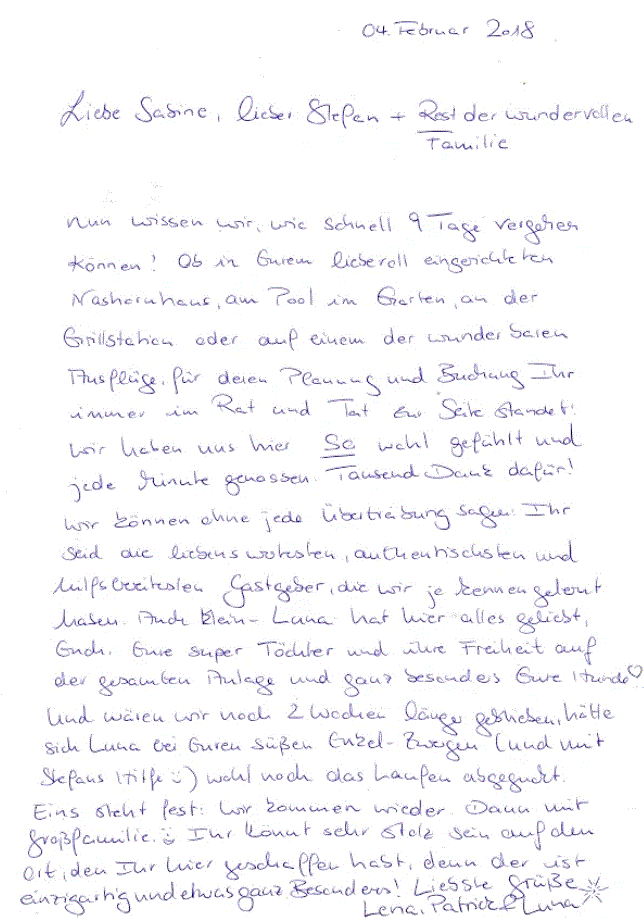 04. Februar 2018
Liebe Sabine, lieber Stefan + Rest der wundervollen
Familie
Nun wissen wir, wie schnell 9 Tage vergehen
können! Ob in Eurem liebevoll eingerichteten
Nashornhaus, am Pool im Garten, an der
Grillstation oder auf einem der wunderbaren
Ausflüge, für deren Planung und Buchung Ihr
immer im Rat und Tat zur Seite standet!
Wir haben uns hier So wohl gefühlt und
jede Minute genossen. Tausend Dank dafür!
Wir können ohne jede Übertreibung sagen: Ihr
seid die liebenswertesten, authentischsten und
hilfsbereitesten Gastgeber, die wir je kennengelernt
haben. Auch Klein-Luna hat hier alles geliebt,
Euch. Eure super Töchter und ihre Freiheit auf
der gesamten Anlage und ganz besonders Eure Hunde♡
Und wären wir noch 2 Wochen länger geblieben, hätte
sich Luna bei Euren süßen Enkel-Zwergen (und mit
Stefans Hilfe :)) wohl noch das Laufen abgeguckt.
Eins steht fest: Wir kommen wieder. Dann mit
Großfamilie. :) Ihr könnt sehr stolz sein auf den
Ort, den Ihr hier geschaffen habt, denn der ist
einzigartig und etwas ganz Besonders! Liebste Grüße
Lena, Patrick & Luna